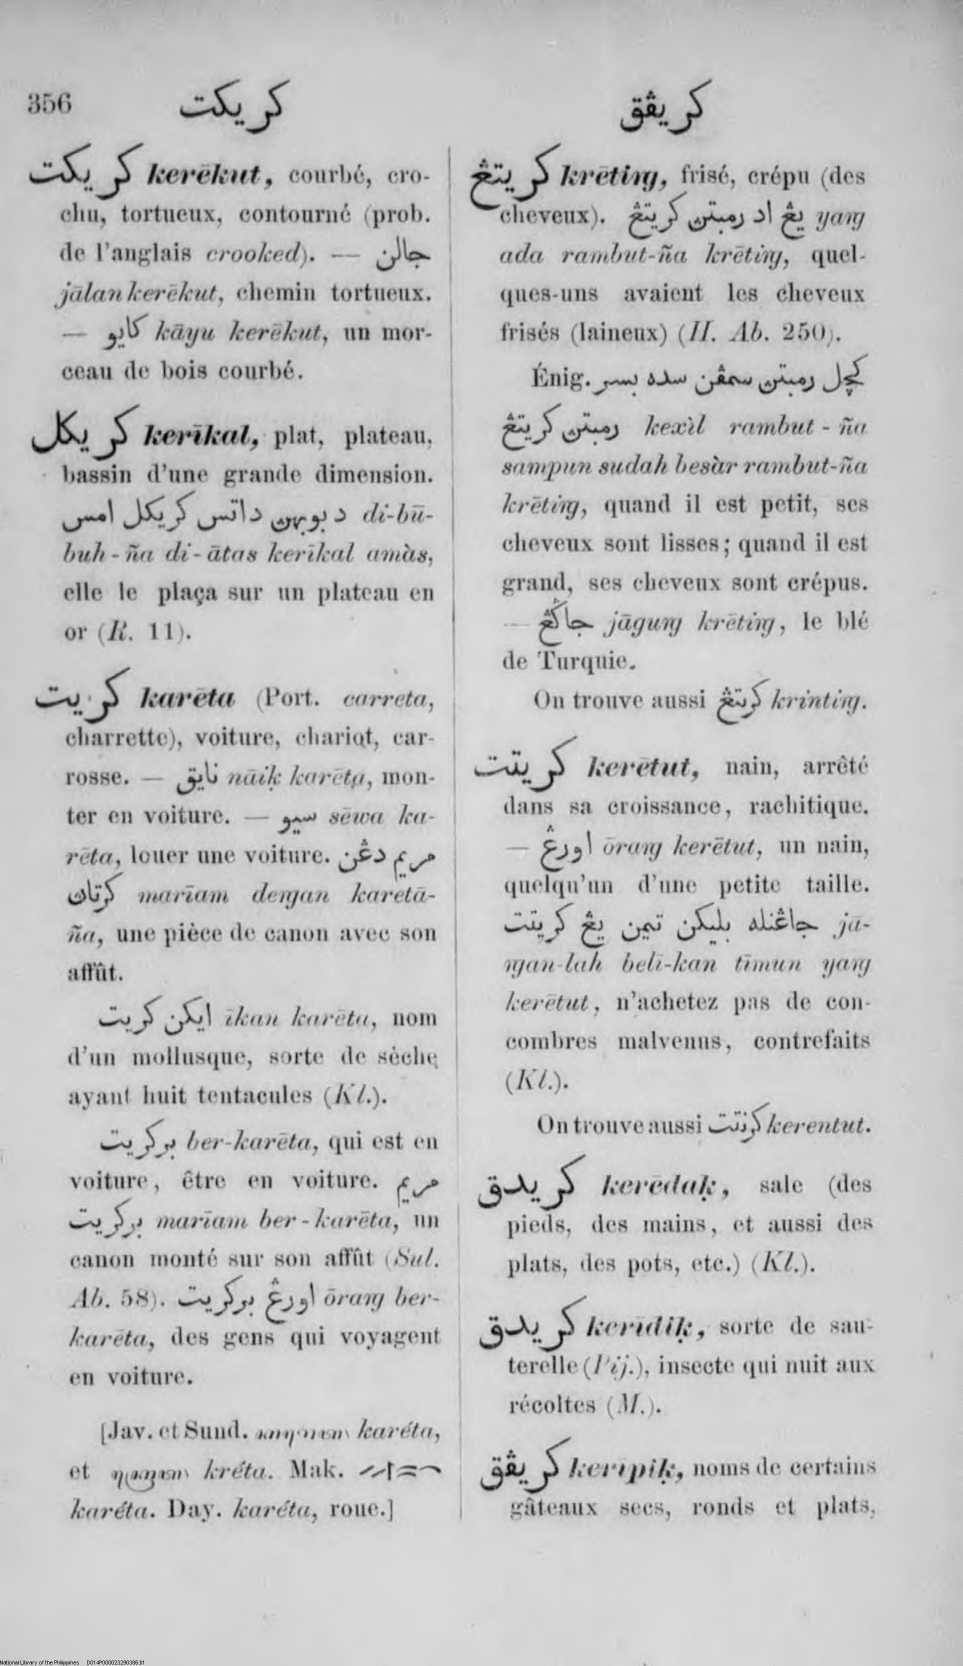 356
كريكت
كريڤق
كريكت kerēkut, courbé, cro-
chu, tortueux, contourné (prob.
de l'anglais crooked). — جالن
jālan kerēkut, chemin tortueux.
— كايو kāyu kerēkut, un mor-
ceau de bois courbé.
كريكل kerīkal, plat, plateau,
bassin d'une grande dimension.
دبوبهڽ داتس كريكل امس di-bū-
buh-ña di-ātas kerīkal amàs,
elle le plaça sur un plateau en
or (R. 11).
كريت karēta (Port. carreta,
charrette), voiture, chariot, car-
rosse. — نايق nāiḳ karēta, mon-
ter en voiture. — سيو sēwa ka-
rēta, louer une voiture. مريم دڠن
كرتاڽ marīam deṅgan karetā-
ña, une pièce de canon avec son
affût.
ايكن كريت īkan karēta, nom
d'un mollusque, sorte de sèche
ayant huit tentacules (Kl.).
بركريت ber-karēta, qui est en
voiture, être en voiture. مريم
بركريت marīam ber-karēta, un
canon monté sur son affût (Sul.
Ab. 58). اورڠ بركريت ōraṅg ber-
karēta, des gens qui voyagent
en voiture.
[Jav. et Sund. karéta,
et kréta. Mak.
karéta. Day. karéta, roue.]
كريتڠ krētiṅg, frisé, crépu (des
cheveux). يڠ اد رمبتڽ كريتڠ yaṅg
ada rambut-ña krētiṅg, quel-
ques-uns avaient les cheveux
frisés (laineux) (H. Ab. 250).
Énig. كچل رمبتڽ سمڤن سده بسر
رمبتڽ كريتڠ kexìl rambut-ña
sampun sudah besàr rambut-ña
krētiṅg, quand il est petit, ses
cheveux sont lisses; quand il est
grand, ses cheveux sont crépus.
— جاڬڠ jāguṅg krētiṅg, le blé
de Turquie.
On trouve aussi كرنتڠ krintiṅg.
كريتت kerētut, nain, arrêté
dans sa croissance, rachitique.
— اورڠ ōraṅg kerētut, un nain,
quelqu'un d'une petite taille.
جاڠنله بليكن تيمن يڠ كريتت ja-
ṅgan-lah belī-kan tīmun yaṅg
kerētut, n'achetez pas de con-
combres malvenus, contrefaits
(Kl.).
On trouve aussi كرنتت kerentut.
كريدق kerēdaḳ, sale (des
pieds, des mains, et aussi des
plats, des pots, etc.) (Kl.).
كريدق kerīdiḳ, sorte de sau-
terelle (Pij.), insecte qui nuit aux
récoltes (M.).
كريڤق keripiḳ, noms de certains
gâteaux secs, ronds et plats,
National Library of the Philippines